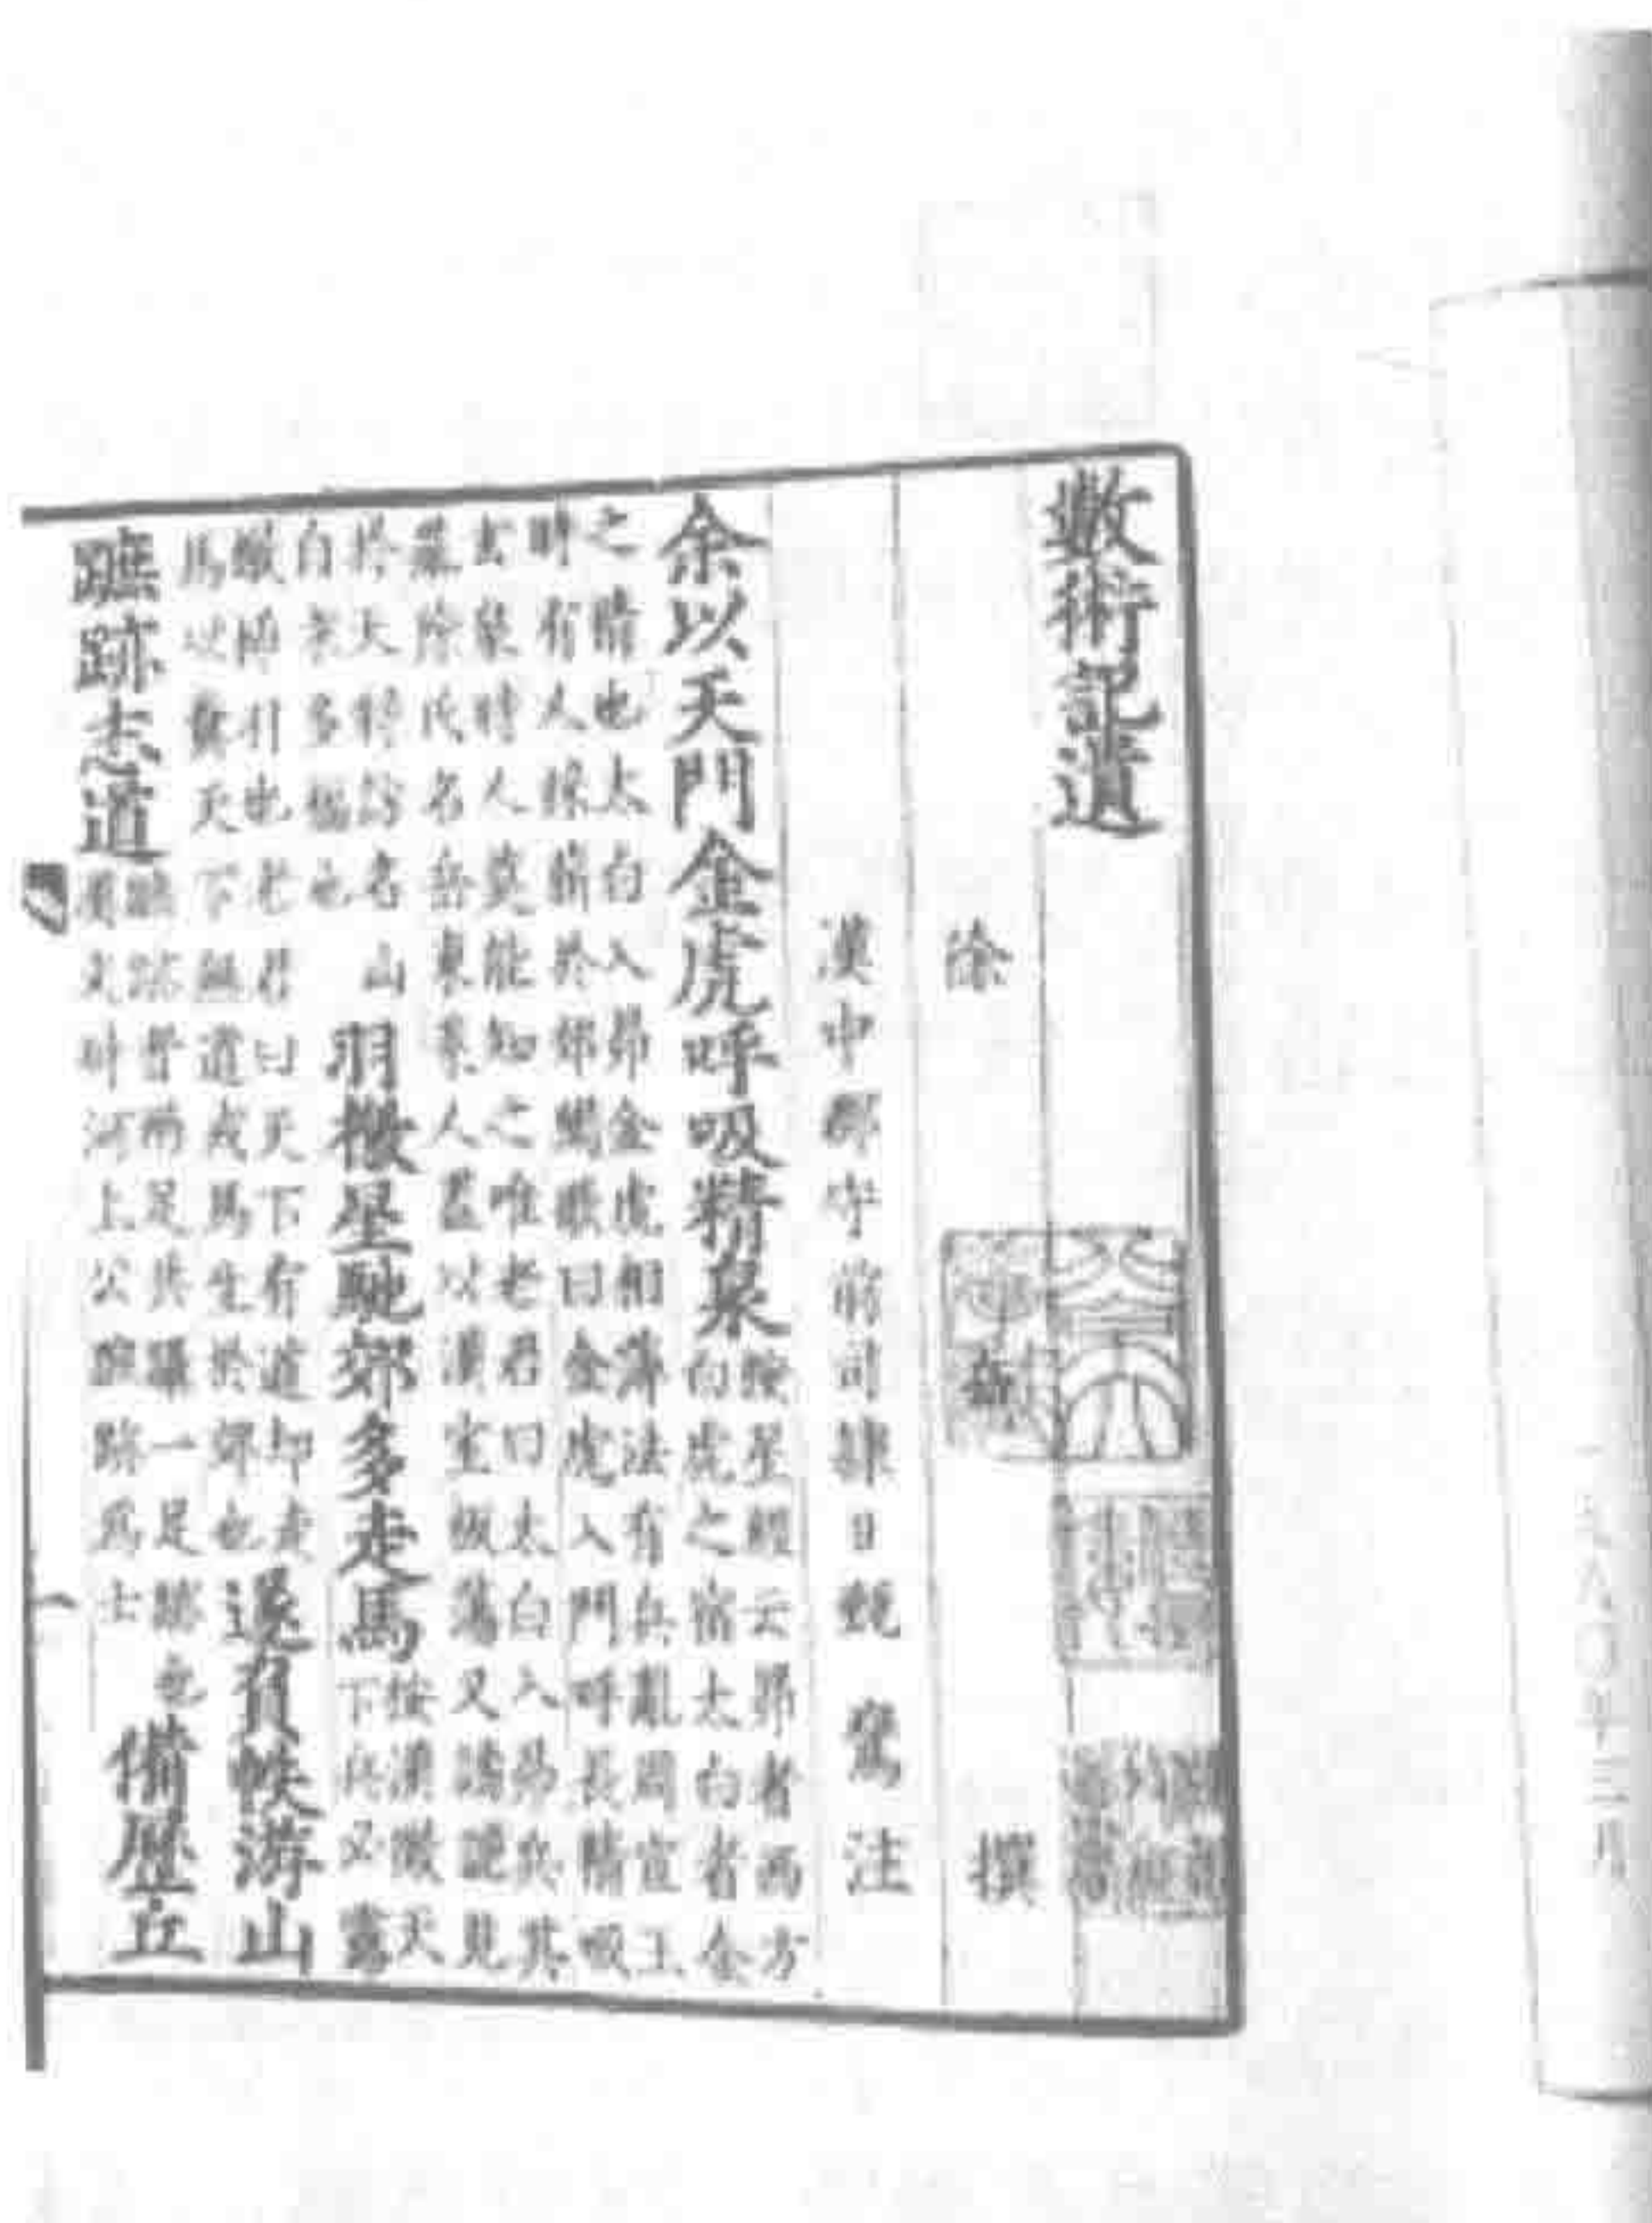 數術記遺
徐 岳 撰
漢中郡守前司隷 甄鸞注
余以天門金虎呼吸精泉 按星經云昴者西方
白虎之宿太白者金
之精也太白入昴金虎相薄法有兵亂周宣王
時有人採薪於郊間歌曰金虎入門呼長精吸
玄泉時人莫能知之唯老君曰太白入昴兵其
徐氏名岳東萊人蓋以漢室板蕩又譊見
於天時訪名山
白 多 也 羽檄星馳郊多走馬 按漢徵天
下兵必露
檄插羽也老君曰天下有道却走
馬以糞天下無道戎馬生於郊也 遂負帙游山
蹠跡志道 足共躡一足跡也
漢文時河上公 跡爲士 備歷丘
一